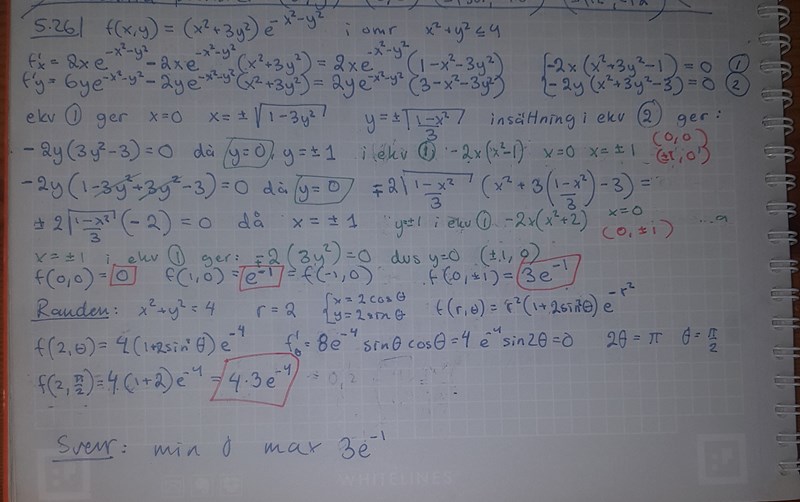 5.26) f(x,y) = (x²+3y²)e^{-x²-y²} i omr x²+y² ≤ 4
f'x = 2xe^{-x²-y²} - 2xe^{-x²-y²}(x²+3y²) = 2xe^{-x²-y²}(1-x²-3y²) {-2x(x²+3y²-1) = 0 ①
f'y = 6ye^{-x²-y²} - 2ye^{-x²-y²}(x²+3y²) = 2ye^{-x²-y²}(3-x²-3y²) {-2y(x²+3y²-3) = 0 ②
ekv ① ger x=0 x = ±√(1-3y²) y = ±√((1-x²)/3) insättning i ekv ② ger:
-2y(3y²-3) = 0 då y=0, y=±1 i ekv ① -2x(x²-1) x=0 x=±1 (0,0) (±1,0)
-2y(1-3y²+3y²-3) = 0 då y=0 ∓2√((1-x²)/3) (x²+3((1-x²)/3)-3) =
±2√((1-x²)/3)(-2) = 0 då x = ±1 y=±1 i ekv ① -2x(x²+2) x=0 (0,±1)
x = ±1 i ekv ① ger: ∓2(3y²) = 0 dvs y=0 (±1,0)
f(0,0) = 0 f(1,0) = e^{-1} = f(-1,0) f(0,±1) = 3e^{-1}
Randen: x²+y² = 4 r = 2 {x = 2cosθ y = 2sinθ f(r,θ) = r²(1+2sin²θ)e^{-r²}
f(2,θ) = 4(1+2sin²θ)e^{-4} f'θ = 8e^{-4} sinθcosθ = 4e^{-4} sin2θ = 0 2θ = π θ = π/2
f(2,π/2) = 4(1+2)e^{-4} = 4·3e^{-4}
Svar: min 0 max 3e^{-1}
WHITELINES